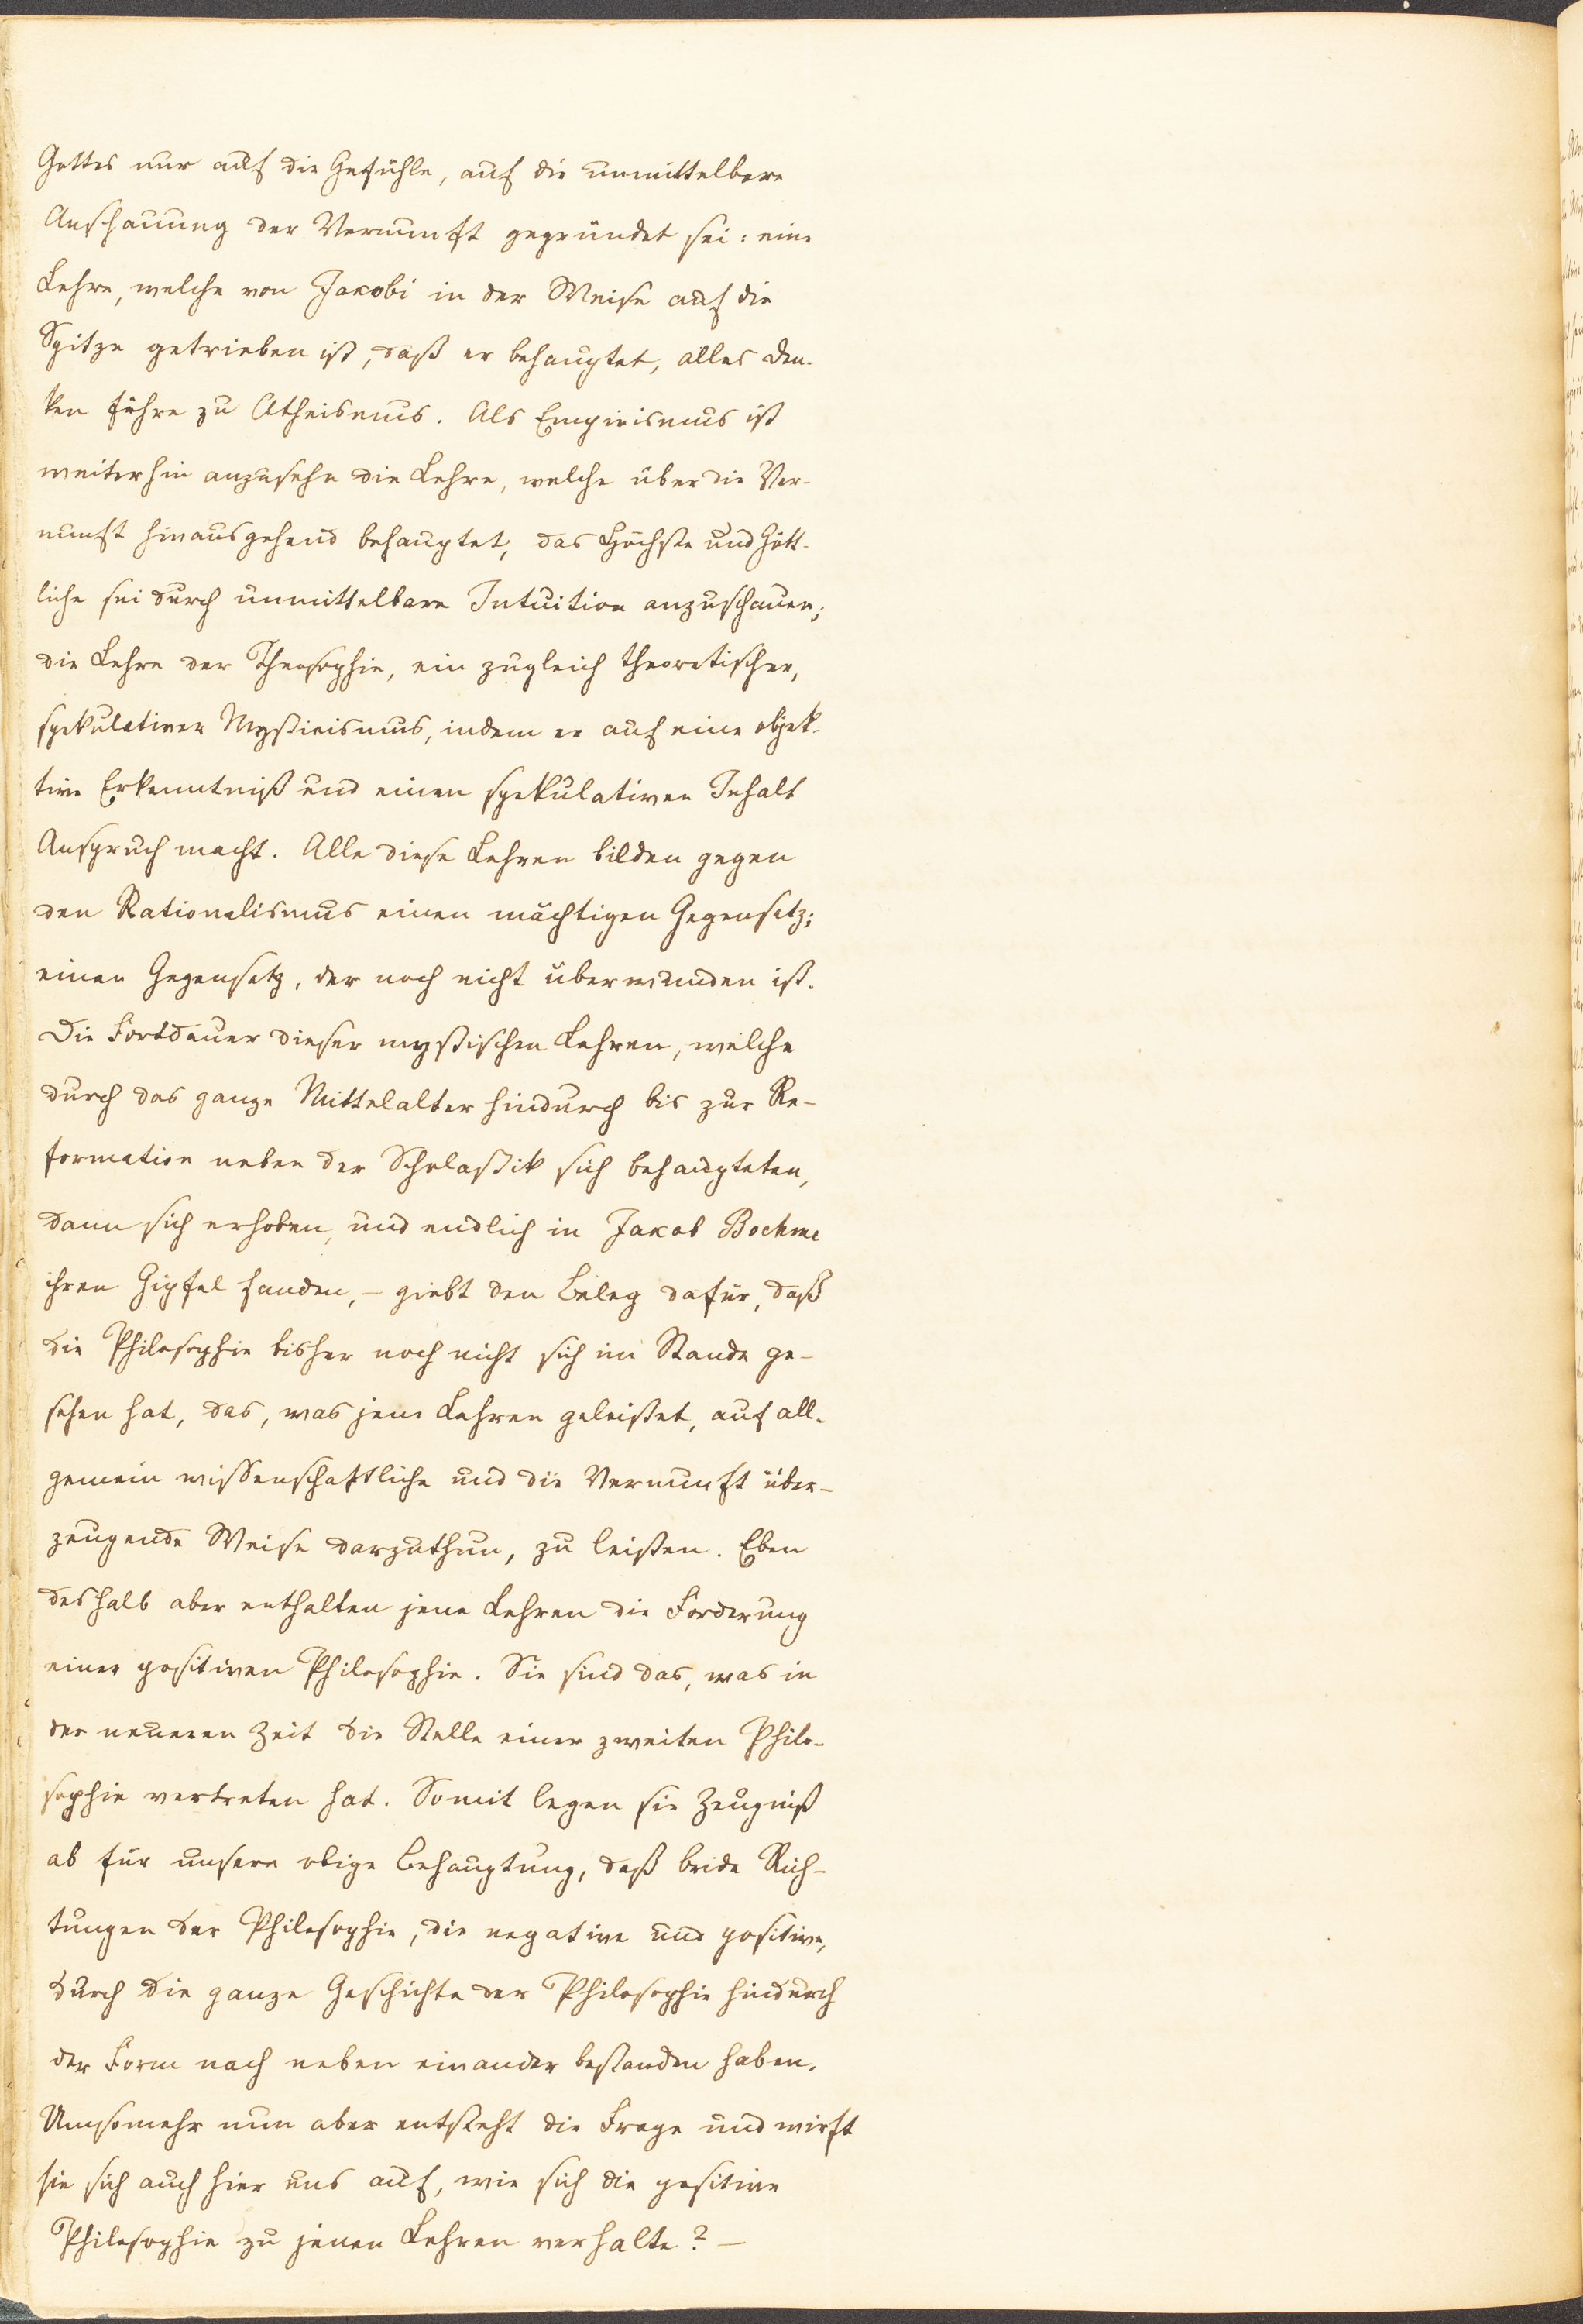 Gottes nur auf die Gefühle, auf die unmittelbare
Anschauung der Vernunft gegründet sei: eine
Lehre, welche von Jakobi in der Weise auf die
Spitze getrieben ist, daß er behauptet, alles Den-
ken führe zu Atheismus. Als Empirismus ist
weiterhin anzusehn die Lehre, welche über die Ver-
nunft hinausgehend behauptet, das Höchste und Gött-
liche sei durch unmittelbare Intuition anzuschauen;
die Lehre der Theosophie, ein zugleich theoretischer,
spekulativer Mysticismus, indem er auf eine objek-
tive Erkenntniß und einen spekulativen Inhalt
Anspruch macht. Alle diese Lehren bilden gegen
den Rationalismus einen mächtigen Gegensatz;
einen Gegensatz, der noch nicht überwunden ist.
Die Fortdauer dieser mystischen Lehren, welche
durch das ganze Mittelalter hindurch bis zur Re-
formation neben der Scholastik sich behaupteten,
dann sich erhoben, und endlich in Jakob Boehme
ihren Gipfel fanden, – giebt den Beleg dafür, daß
die Philosophie bisher noch nicht sich im Stande ge-
sehen hat, das, was jene Lehren geleistet, auf all-
gemein wissenschaftliche und die Vernunft über-
zeugende Weise darzuthun, zu leisten. Eben
deshalb aber enthalten jene Lehren die Forderung
einer positiven Philosophie. Sie sind das, was in
der neueren Zeit die Stelle einer zweiten Philo-
sophie vertreten hat. Somit legen sie Zeugniß
ab für unsere obige Behauptung, daß beide Rich-
tungen der Philosophie, die negative und positive,
durch die ganze Geschichte der Philosophie hindurch
der Form nach neben einander bestanden haben.
Umsomehr nun aber entsteht die Frage und wirft
sie sich auch hier uns auf, wie sich die positive
Philosophie zu jenen Lehren verhalte? –